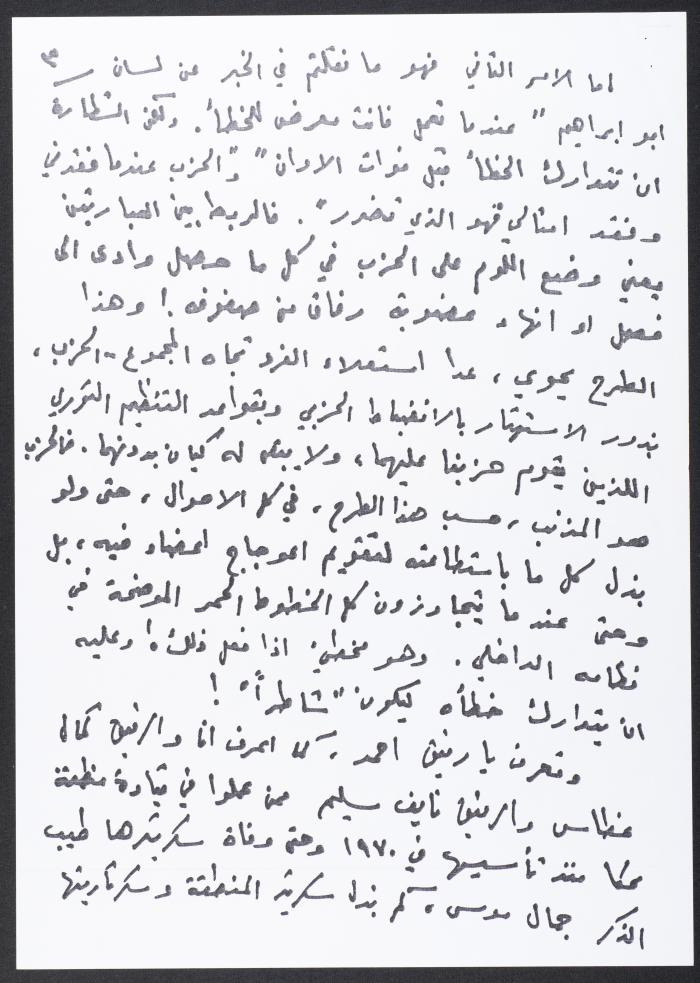 ٣
اما الامر الثاني فهو ما نقلتم في الخبر عن لسان
ابو ابراهيم " عندما تعمل فانت معرض للخطأ. ولكن الشطارة
ان تتدارك الخطأ قبل فوات الاوان" و"الحزب عندما فقدني
وفقد امثالي فهو الذي تضرر". فالربط بين العبارتين
يعني وضع اللوم على الحزب في كل ما حصل وادى الى
فصل او انهاء عضوية رفاق من صفوفه! وهذا
الطرح يحوي، عدا استعلاء الفرد تجاه المجموع - الحزب،
بذور الاستهتار بالانضباط الحزبي وبقواعد التنظيم الثوري
اللذين يقوم حزبنا عليهما، ولا يبقى له كيان بدونهما. فالحزب
هو المذنب، حسب هذا الطرح، في كل الاحوال، حتى ولو
بذل كل ما باستطاعته لتقويم اعوجاج اعضاء فيه، بل
وحتى عند ما يتجاوزون كل الخطوط الحمر الموضحة في
نظامه الداخلي. وهو مخطئ اذا فعل ذلك! وعليه
ان يتدارك خطأه ليكون "شاطراً"!
وتعرف يا رفيق احمد، كما اعرف انا والرفيق كمال
غطاس والرفيق نايف سليم ممن عملوا في قيادة منطقة
عكا منذ تأسيسها في ١٩٧٠ وحتى وفاة سكرتيرها طيب
الذكر جمال موسى، كم بذل سكرتير المنطقة وسكرتاريتها